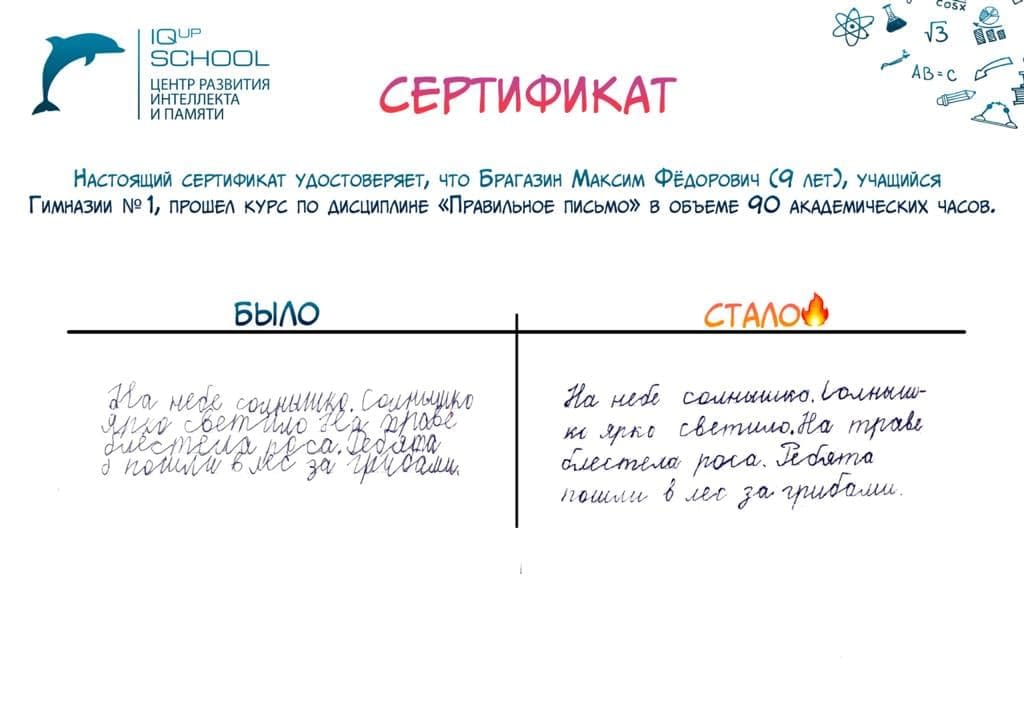 IQUP
SCHOOL
ЦЕНТР РАЗВИТИЯ
ИНТЕЛЛЕКТА
И ПАМЯТИ
cosx
√3
AB=C
СЕРТИФИКАТ
Настоящий сертификат удостоверяет, что Брагазин Максим Фёдорович (9 лет), учащийся
Гимназии №1, прошел курс по дисциплине «Правильное письмо» в объеме 90 академических часов.
БЫЛО
На небе солнышко. Солнышко
ярко светило На траве
блестела роса. Ребята
пошли в лес за грибами.
СТАЛО
На небе солнышко. Солныш-
ко ярко светило. На траве
блестела роса. Ребята
пошли в лес за грибами.